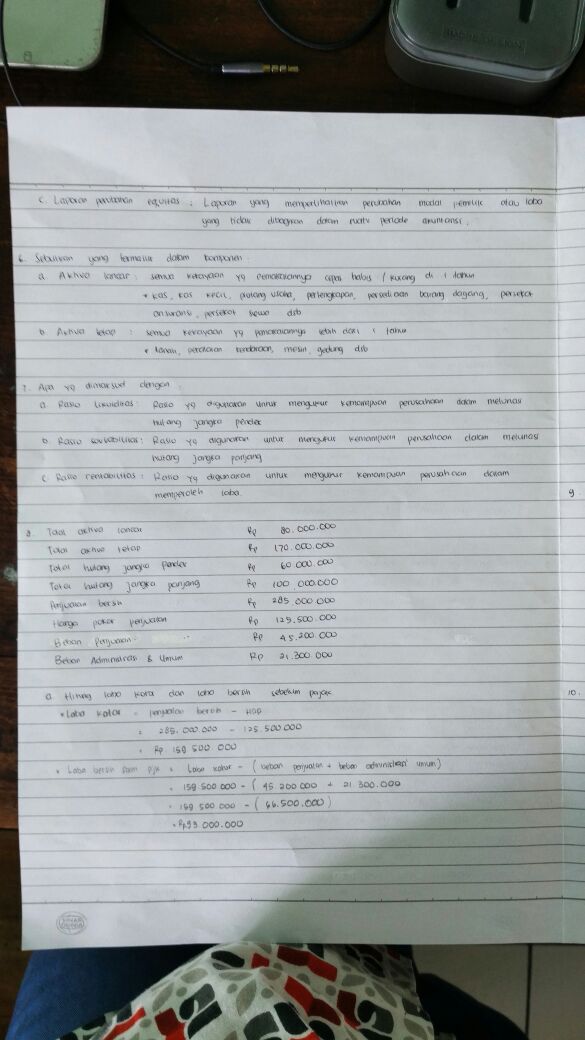 c. Laporan perubahan equitas : Laporan yang memperlihatkan perubahan modal pemilik atau laba
yang tidak dibagikan dalam suatu periode akuntansi.
6. Sebutkan yang termasuk dalam komponen :
a. Aktiva lancar : semua kekayaan yg pemakaiannya habis / kurang dr 1 tahun
* kas, kas kecil, piutang usaha, perlengkapan, persediaan barang dagang, persekot
asuransi, persekot sewa dsb
b. Aktiva tetap : semua kekayaan yg pemakaiannya lebih dari 1 tahun
* tanah, peralatan kendaraan, mesin, gedung dsb
7. Apa yg dimaksud dengan :
a. Rasio likuiditas : Rasio yg digunakan untuk mengukur kemampuan perusahaan dalam melunasi
hutang jangka pendek
b. Rasio solvabilitas : Rasio yg digunakan untuk mengukur kemampuan perusahaan dalam melunasi
hutang jangka panjang
c. Rasio rentabilitas : Rasio yg digunakan untuk mengukur kemampuan perusahaan dalam
memperoleh laba.
9.
8. Total aktiva lancar Rp 80.000.000
Total aktiva tetap Rp 170.000.000
Total hutang jangka pendek Rp 60.000.000
Total hutang jangka panjang Rp 100.000.000
Penjualan bersih Rp 285.000.000
Harga pokok penjualan Rp 125.500.000
Beban Penjualan Rp 45.200.000
Beban Administrasi & Umum Rp 21.300.000
a. Hitung laba kotor dan laba bersih sebelum pajak
10.
* Laba kotor = penjualan bersih - HPP
= 285.000.000 - 125.500.000
= Rp 159.500.000
* Laba bersih sblm pjk = Laba kotor - (beban penjualan + beban administrasi umum)
= 159.500.000 - (45.200.000 + 21.300.000
= 159.500.000 - (66.500.000)
= Rp 93.000.000
SINAR
DUNIA